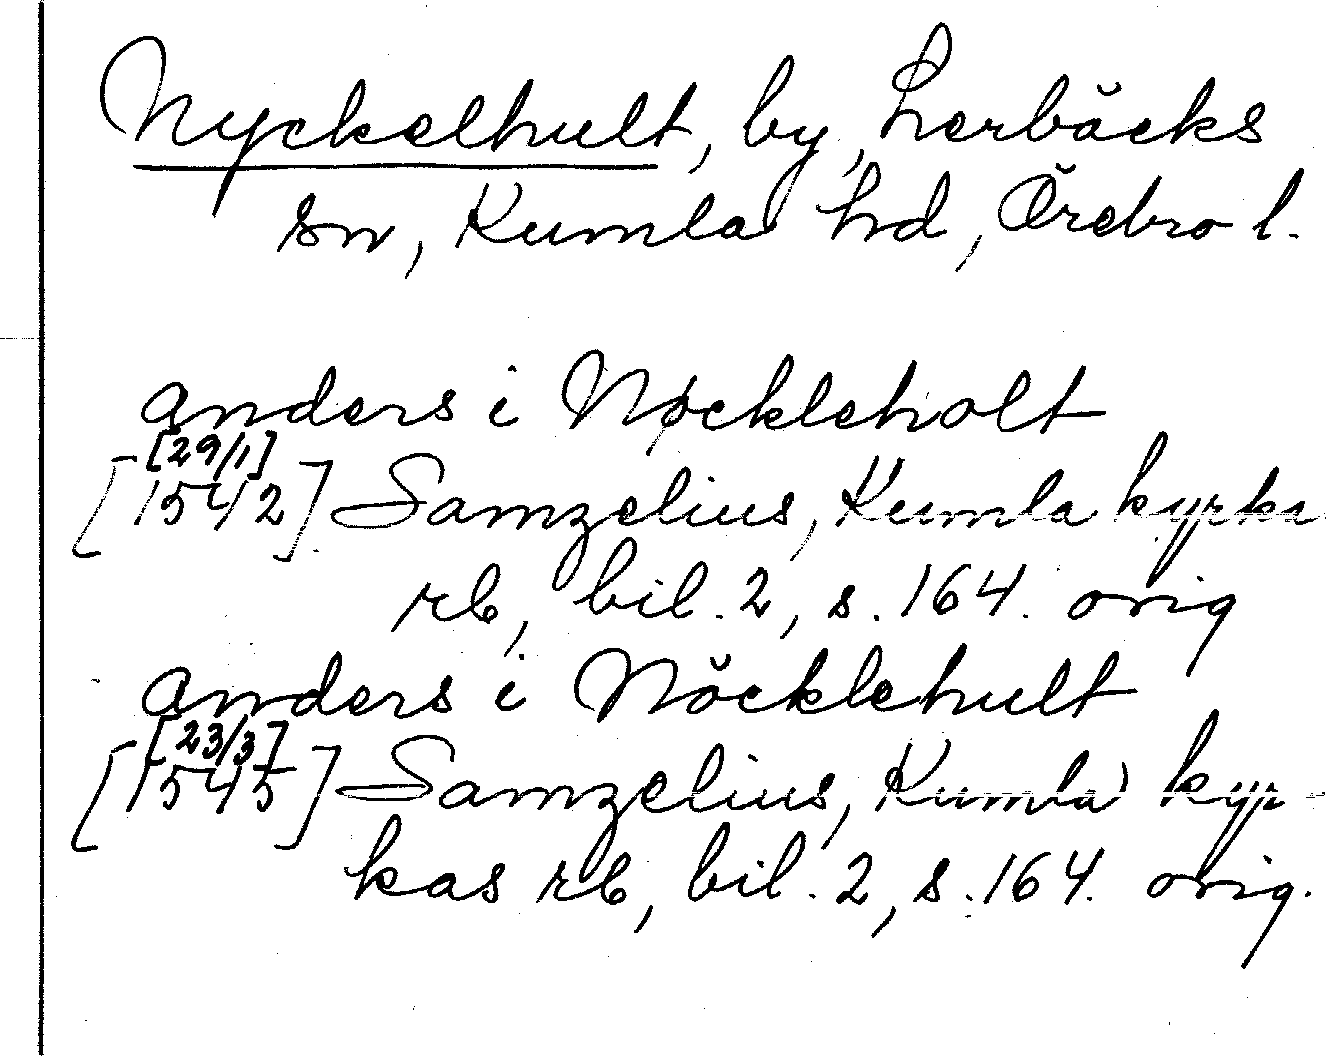 Nyckelhult, by, Lerbäcks
sn, Kumla hd, Örebro l.
anders i Nøckleholt
[29/1]
[1542] Samzelius, Kumla kyrkas
rb, bil. 2, s. 164. orig
anders i Nöcklehult
[23/3]
[1545] Samzelius, Kumla kyr
kas rb, bil. 2, s. 164. orig.